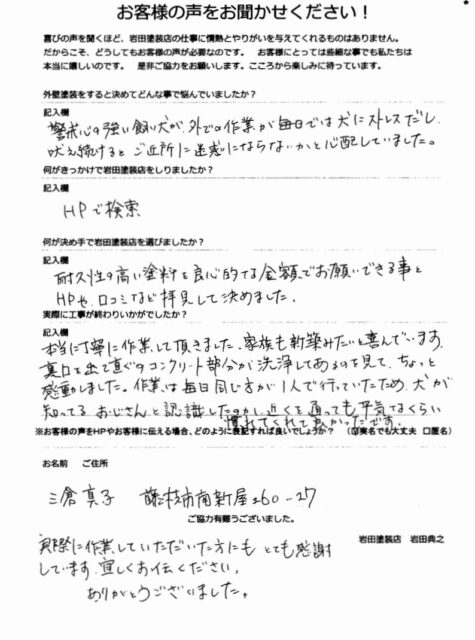 お客様の声をお聞かせください！
喜びの声を聞くほど、岩田塗装店の仕事に情熱とやりがいを与えてくれるものはありません。
だからこそ、どうしてもお客様の声が必要なのです。　お客様にとっては些細な事でも私たちは
本当に嬉しいのです。　是非ご協力をお願いします。こころから楽しみに待っています。
外壁塗装をすると決めてどんな事で悩んでいましたか？
記入欄
警戒心の強い飼い犬が、外での作業が毎日では犬にストレスだし、
吠え続けると ご近所に迷惑にならないかと心配していました。
何がきっかけで岩田塗装店をしりましたか？
記入欄
HPで検索
何が決め手で岩田塗装店を選びましたか？
記入欄
耐久性の高い塗料を良心的な金額でお願いできる事と
HPや、口コミなど拝見して決めました。
実際に工事が終わりいかがでしたか？
記入欄
本当に丁寧に作業して頂きました。家族も新築みたいと喜んでいます。
裏口を出て直ぐのコンクリート部分が洗浄してあるのを見て、ちょっと
感動しました。作業は毎日同じ方が1人で行っていたため、犬が
知ってるおじさんと認識したのか、近くを通っても平気なくらい
慣れてくれて良かったです。
※お客様の声をHPやお客様に伝える場合、どのように表記すれば良いでしょうか？　（☑実名でも大丈夫　☐匿名）
お名前　ご住所
三倉 真子　藤枝市南新屋260-27
ご協力有難うございました。
岩田塗装店　岩田典之
実際に作業していただいた方にも とても感謝
しています。宜しくお伝えください。
ありがとうございました。